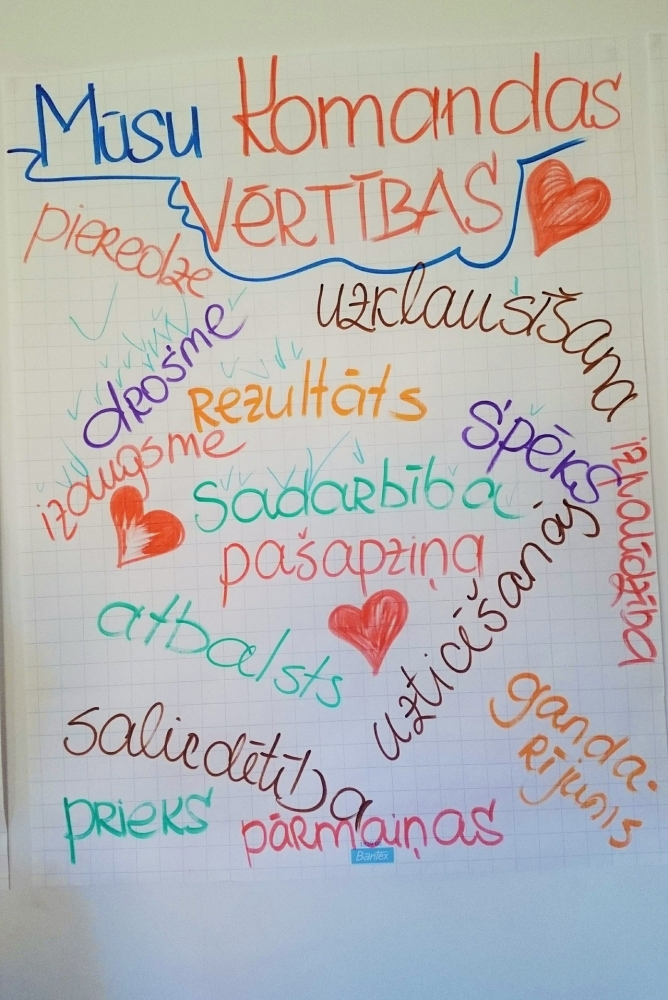 Mūsu Komandas
VĒRTĪBAS
pieredze
uzklausīšana
drošme
Rezultāts
spēks
izaugsme
izpalīdzība
sadarbība
pašapziņa
uzticēšanās
atbalsts
ganda-
rījums
saliedētība
prieks
pārmaiņas
Bantex